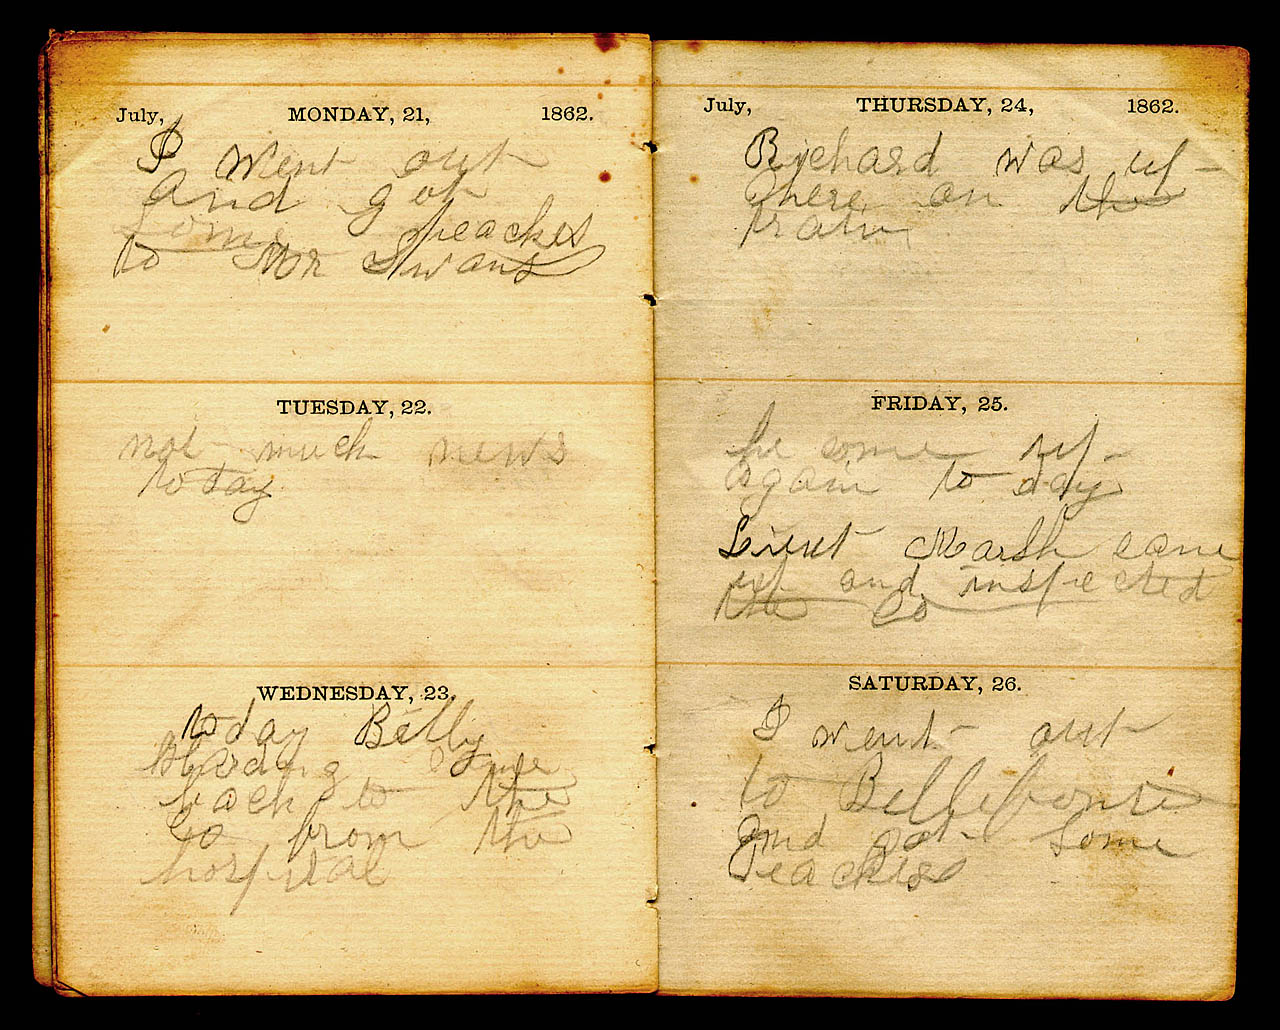 July, MONDAY, 21, 1862.
I went out
and got
some peaches
to Mr Swans
TUESDAY, 22.
not much news
today
WEDNESDAY, 23.
today Billy
Harding came
back to the
Co from the
hospital
July, THURSDAY, 24, 1862.
Richard was up
there on the
train
FRIDAY, 25.
he come up
again to day
Lieut Marsh came
up and inspected
the Co
SATURDAY, 26.
I went out
to Bellefonte
and got some
peaches